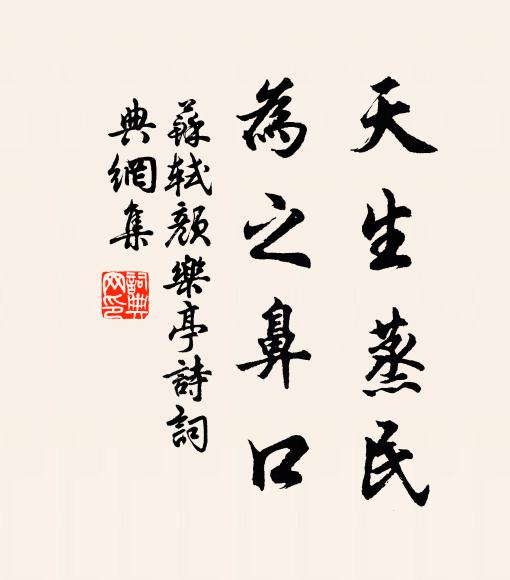 天生蒸民
為之鼻口
蘇軾顏樂亭詩詞
典網集
詞典網印